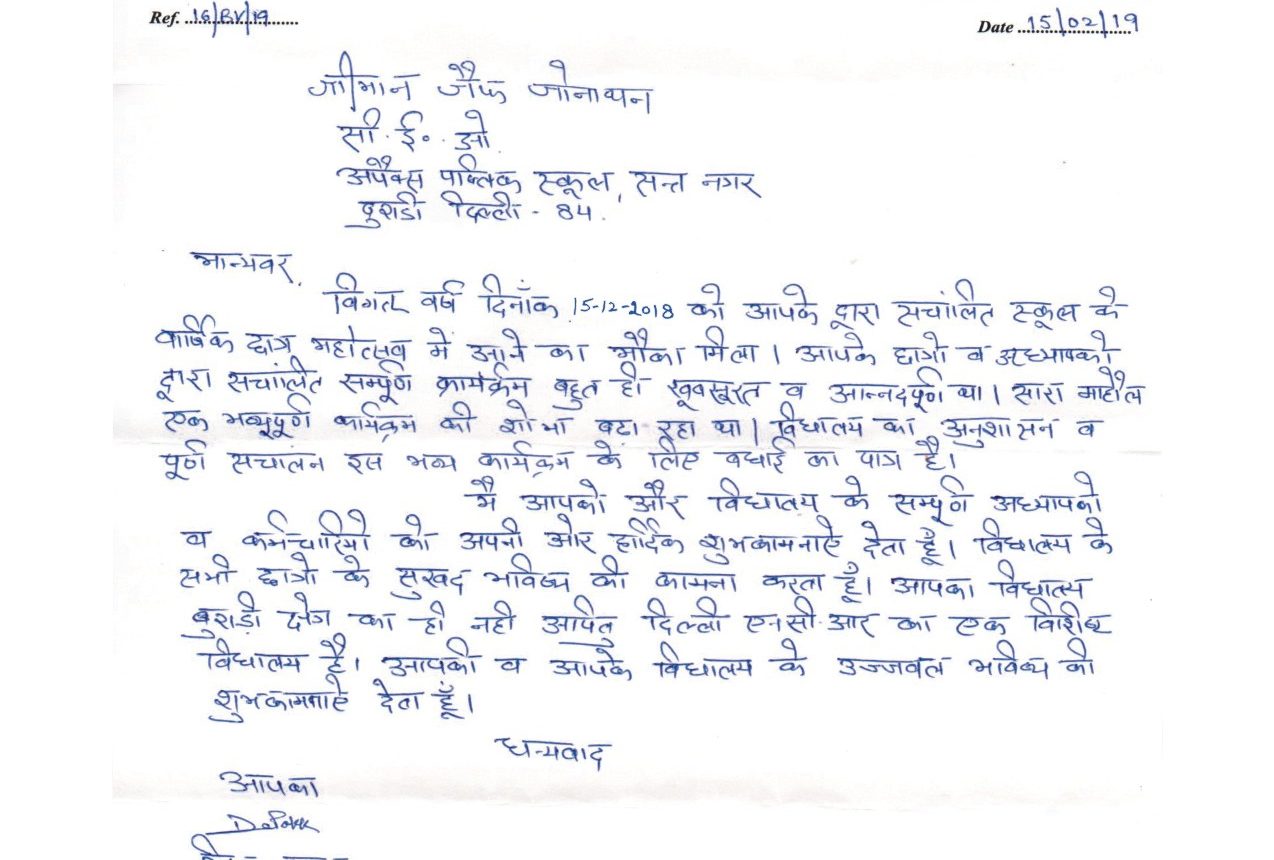 Ref. 16/BV/19
Date 15/02/19
श्रीमान जैफ जोनाथन
सी. ई. ओ.
अपैक्स पब्लिक स्कूल, सन्त नगर
बुराडी दिल्ली - 84.
मान्यवर,
विगत वर्ष दिनाँक 15-12-2018 को आपके द्वारा सचांलित स्कूल के
वार्षिक छात्र महोत्सव में आने का मौका मिला। आपके छात्रो व अध्यापको
द्वारा सचांलित सम्पूर्ण कार्यक्रम बहुत ही खूबसूरत व आन्नदपूर्ण था। सारा माहौल
एक भव्यपूर्ण कार्यक्रम की शोभा बढा रहा था। विधालय का अनुशासन व
पूर्ण सचालन इस भव्य कार्यक्रम के लिए बधाई का पात्र है।
मै आपको और विधालय के सम्पूर्ण अध्यापको
व कर्मचारियो को अपनी ओर हार्दिक शुभकामनाऐ देता हूँ। विधालय के
सभी छात्रो के सुखद भविष्य की कामना करता हूँ। आपका विधालय
बुराडी क्षेत्र का ही नही अपितु दिल्ली एनसी.आर का एक विशिष्ट
विधालय है। आपकी व आपके विधालय के उज्जवल भविष्य की
शुभकामनाऐ देता हूँ।
धन्यवाद
आपका